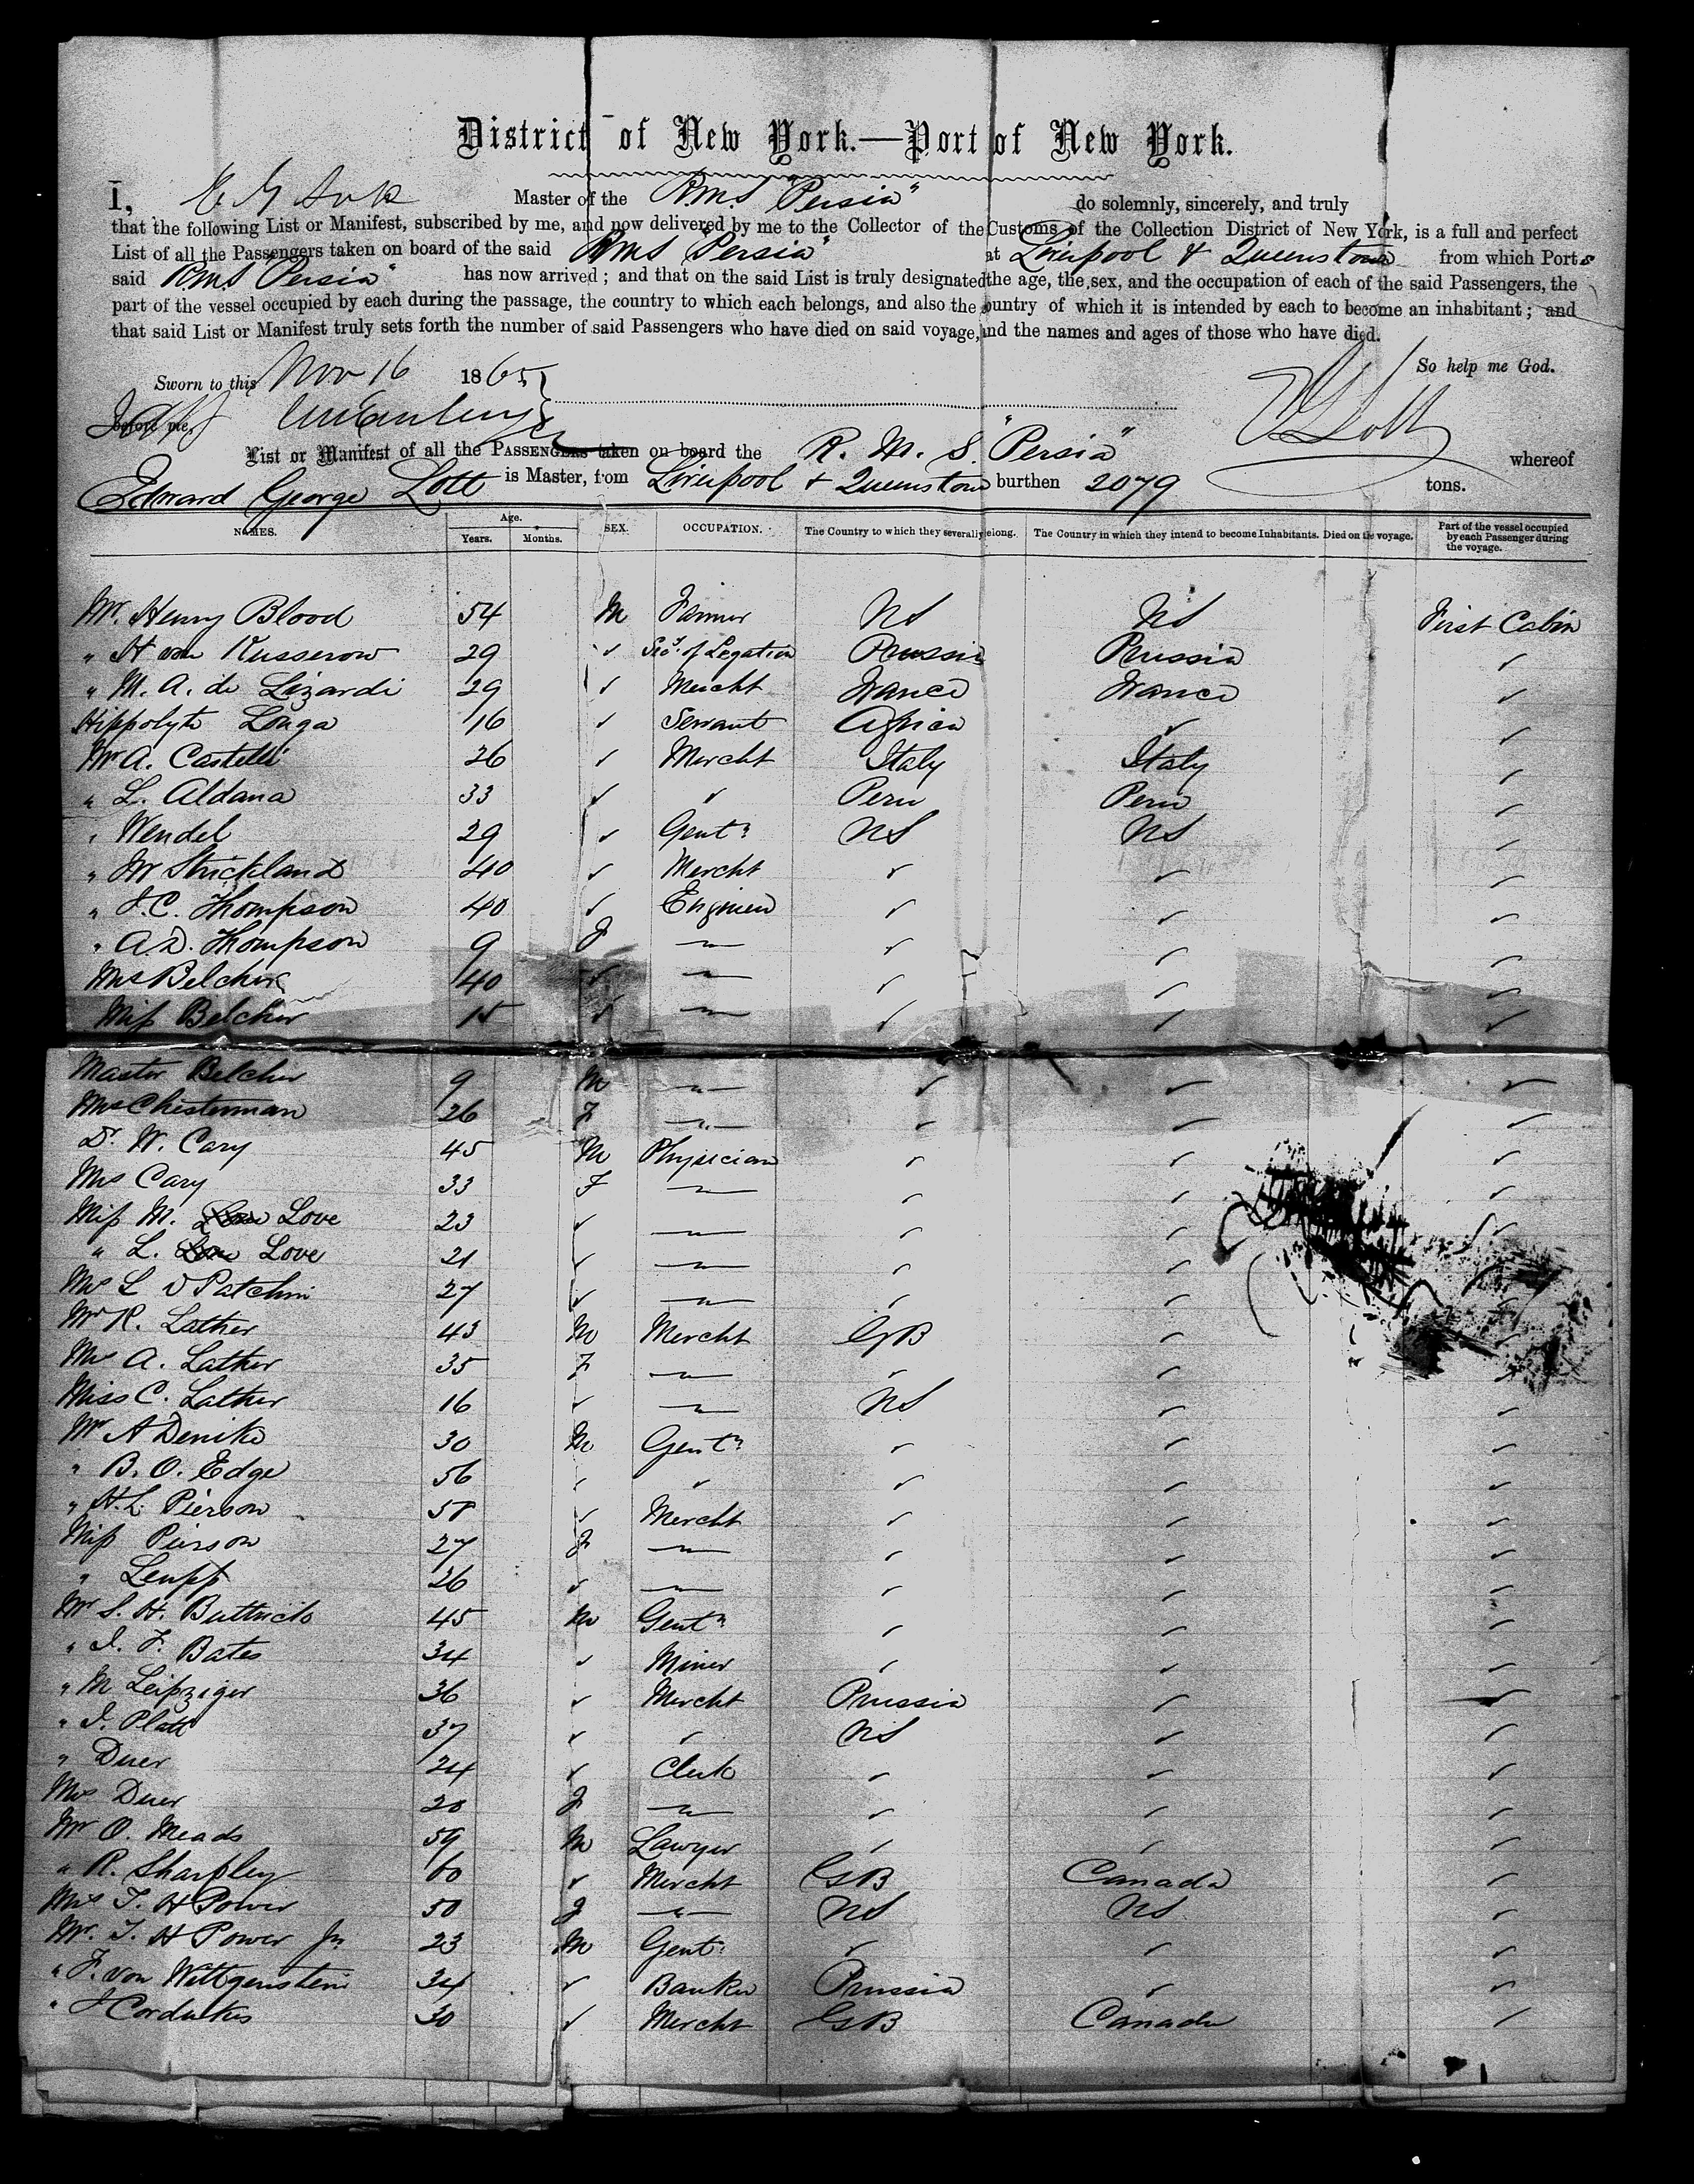 District of New York.—Port of New York.
I, E G Lott Master of the R.M.S "Persia" do solemnly, sincerely, and truly
that the following List or Manifest, subscribed by me, and now delivered by me to the Collector of the Customs of the Collection District of New York, is a full and perfect
List of all the Passengers taken on board of the said RMS "Persia" at Liverpool & Queenstown from which Ports
said R.M.S "Persia" has now arrived; and that on the said List is truly designated the age, the sex, and the occupation of each of the said Passengers, the
part of the vessel occupied by each during the passage, the country to which each belongs, and also the ountry of which it is intended by each to become an inhabitant; and
that said List or Manifest truly sets forth the number of said Passengers who have died on said voyage, and the names and ages of those who have died.
So help me God.
Sworn to this Nov 16 1865
before me, E G Lott
List or Manifest of all the PASSENGERS taken on board the R. M. S. "Persia" whereof
Edward George Lott is Master, from Liverpool & Queenstown burthen 2079 tons.
NAMES. Age. Years. Months. SEX. OCCUPATION. The Country to which they severally belong. The Country in which they intend to become Inhabitants. Died on the voyage. Part of the vessel occupied by each Passenger during the voyage.
Mr. Henry Blood 54 M Farmer US US First Cabin
" H von Kusserow 29 ✓ Secy of Legation Prussia Prussia ✓
" M. A. de Lizardi 29 ✓ Mercht France France ✓
Hippolyte Longa 16 ✓ Servant Africa ✓ ✓
Mr A. Castelli 26 ✓ Mercht Italy Italy ✓
" L. Aldana 33 ✓ ✓ Peru Peru ✓
" Wendel 29 ✓ Gentn US US ✓
" Strickland 40 ✓ Mercht ✓ ✓ ✓
" J. C. Thompson 40 ✓ Engineer ✓ ✓ ✓
" A. D. Thompson 9 F — ✓ ✓ ✓
Mrs Belcher 40 ✓ — ✓ ✓ ✓
Miss Belcher 15 ✓ — ✓ ✓ ✓
Master Belcher 9 M — ✓ ✓ ✓
Mrs Chesterman 26 F — ✓ ✓ ✓
Dr. W. Cary 45 M Physician ✓ ✓ ✓
Mrs Cary 33 F — ✓ ✓ ✓
Miss M. Love 23 ✓ — ✓ ✓ ✓
" L. Love 21 ✓ — ✓ ✓
Mrs L V Patchin 27 ✓ — ✓ ✓
Mr R. Lather 43 M Mercht GB ✓
Mrs A. Lather 35 F — ✓ ✓ ✓
Miss C. Lather 16 ✓ — US ✓ ✓
Mr A Denike 30 M Gentn ✓ ✓ ✓
" B. O. Edge 56 ✓ ✓ ✓ ✓ ✓
" H. L. Pierson 58 ✓ Mercht ✓ ✓ ✓
Miss Pierson 27 F — ✓ ✓ ✓
" Leupp 26 ✓ — ✓ ✓ ✓
Mr S. H. Buttrick 45 M Gentn ✓ ✓ ✓
" J. F. Bates 34 ✓ Miner ✓ ✓ ✓
" M Leipziger 36 ✓ Mercht Prussia ✓ ✓
" J. Platt 37 ✓ ✓ US ✓ ✓
" Duer 24 ✓ Clerk ✓ ✓ ✓
Mrs Duer 20 F — ✓ ✓ ✓
Mr O. Meads 59 M Lawyer ✓ ✓ ✓
" R. Sharpley 60 ✓ Mercht GB Canada ✓
Mrs T. H Power 50 F — US US ✓
Mr. T. H Power Jr. 23 M Gent. ✓ ✓ ✓
" F. von Wittgenstein 34 ✓ Banker Prussia ✓ ✓
" J Cordukes 30 ✓ Mercht GB Canada ✓